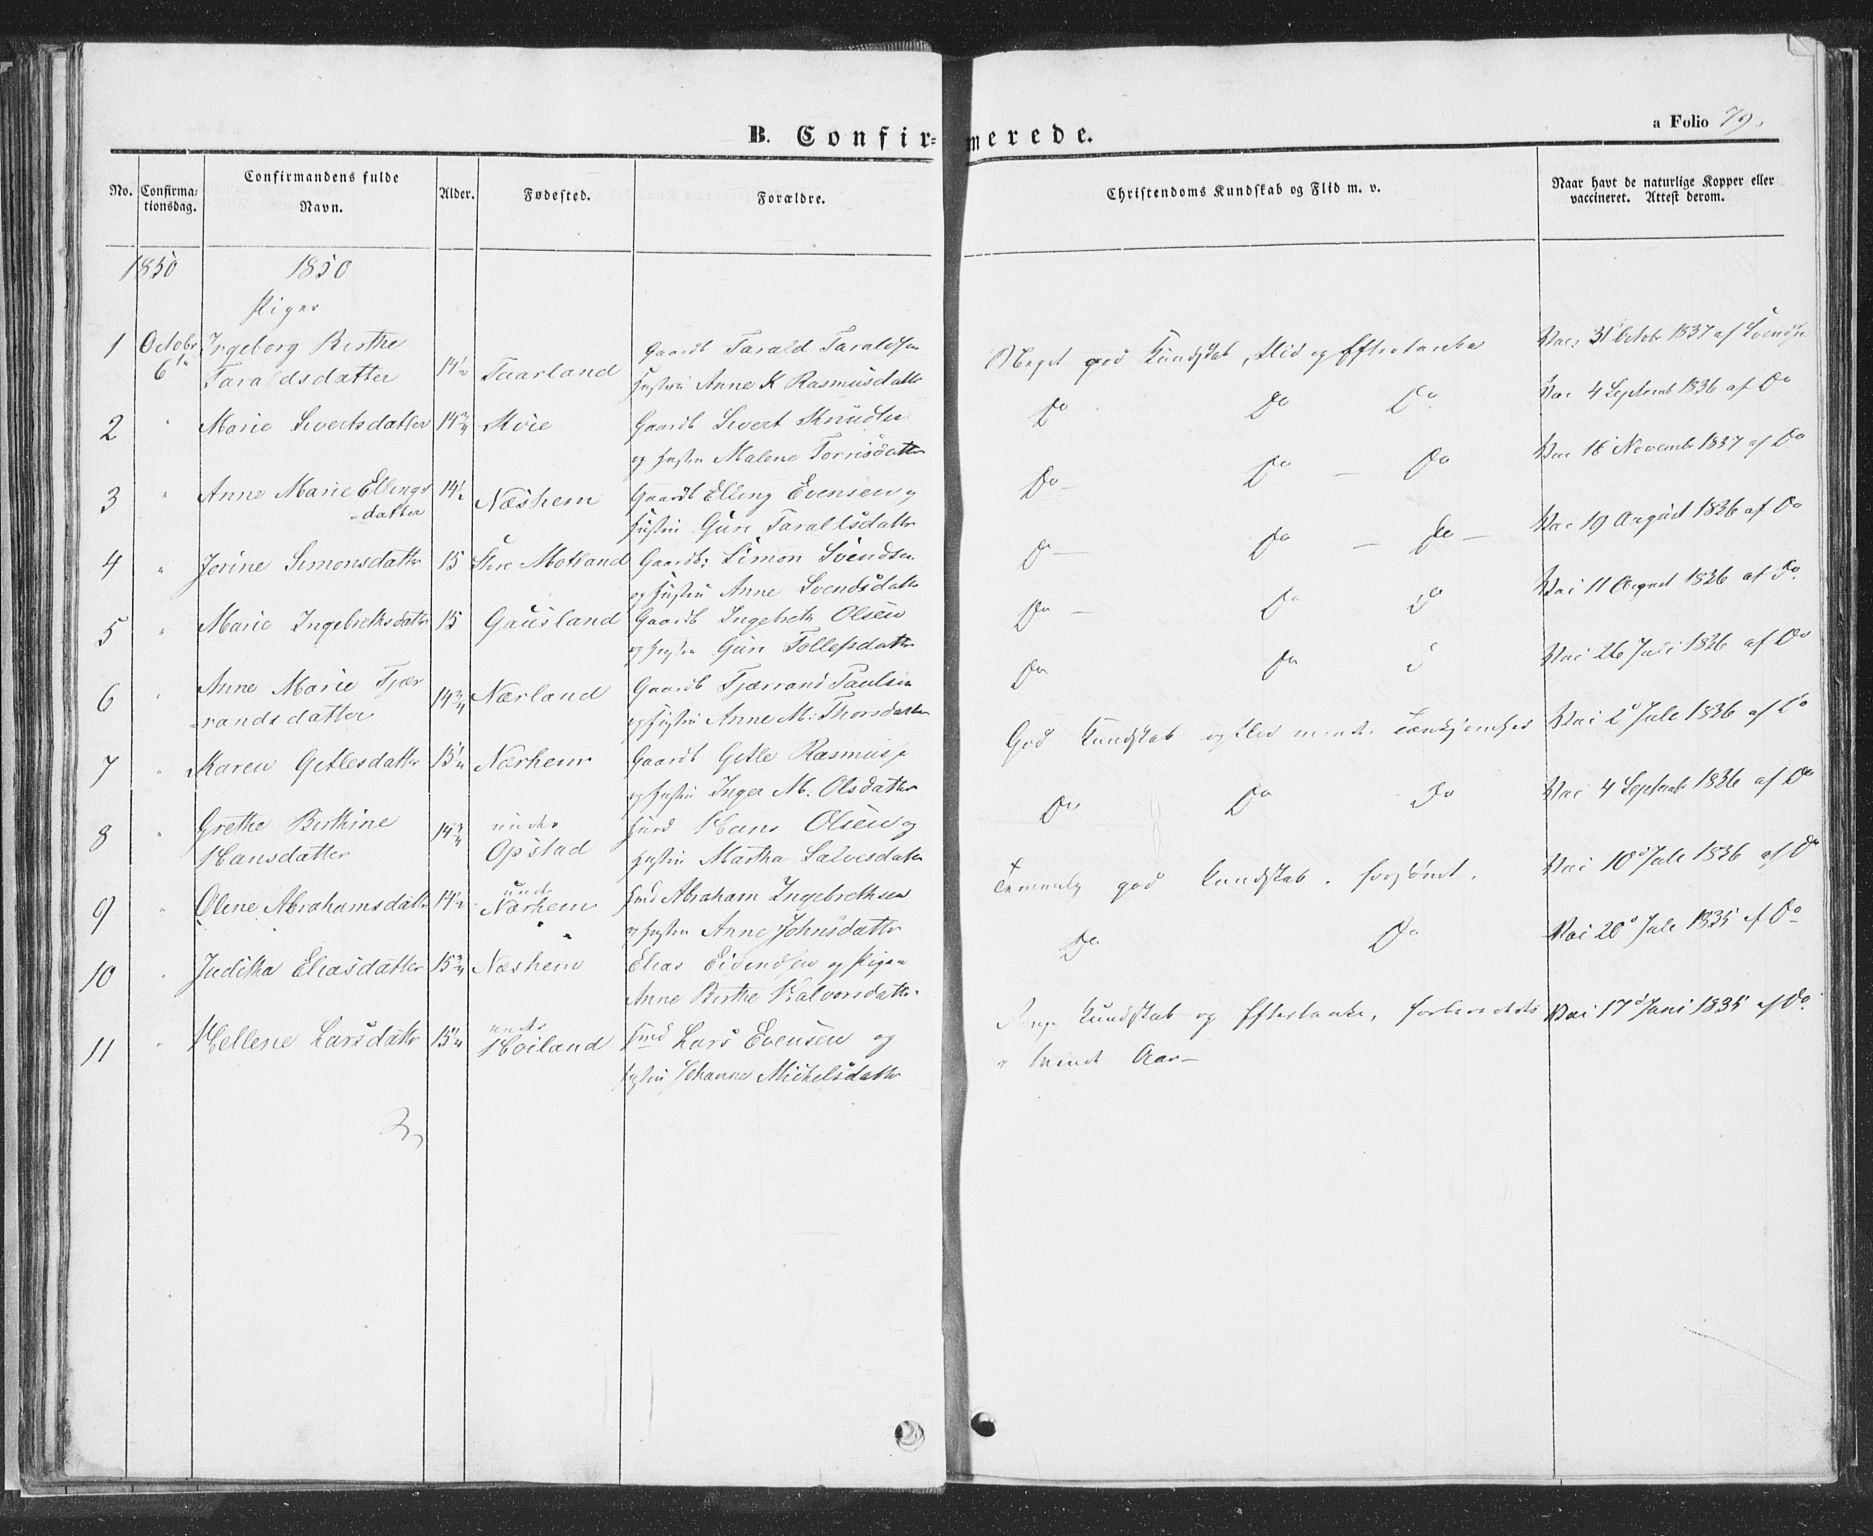 B. Confirmerede.
a Folio 79.
No. Confirmationsdag. Confirmandens fulde Navn. Alder. Fødested. Forældre. Christendoms Kundskab og Flid m. v. Naar havt de naturlige Kopper eller vaccineret. Attest derom.
1850 1850
Piger
1 Octobr 6te Ingeborg Berthe Taraldsdatter 14½ Taarland Gaardb Tarald Taraldsen Hustru Anne K Rasmusdatter Meget god Kundskab, Flid og Eftertanke Vac 31 Octobr 1837 af Svendsen
2 " Marie Sivertsdatter 14¾ Kvie Gaardb Sivert Knudsen og Hustru Malene Torrisdatter Do Do Do Vac 4 Septemb 1836 af Do
3 " Anne Marie Ellingsdatter 14½ Næshem Gaardb Elling Evensen og Hustru Guri Taraldsdatter Do Do Do Vac 16 Novembr 1837 af Do
4 " Jorine Simonsdatter 15 Store Motland Gaardb: Simon Svendsen og Hustru Anne Svendsdatter Do Do Do Vac 19 August 1836 af Do
5 " Marie Ingebrethsdatter 15 Gausland Gaardb Ingebreth Olsen og Hustru Guri Tollefsdatter Do Do Do Vac 11 August 1836 af Do
6 " Anne Marie Tjærrandsdatter 14¾ Nærland Gaardb Tjærrand Paulsen og Hustru Anne M. Thorsdatter Do Do Vac 26 Juli 1836 af Do
7 " Karen Getlesdatter 15¼ Nærhem Gaardb Getle Rasmus og Hustru Inger M. Olsdatter God Kundskab og Flid Vac 2 Juli 1836 af Do
8 " Grethe Berthine Hansdatter 14¾ under Opstad Huusmd Hans Olsen og Hustru Martha Salvesdatter Do Do Do Vac 4 Septemb 1836 af Do
9 " Oline Abrahamsdatter 14½ under Nærhem Huusmd Abraham Ingebrethsen og Hustru Anne Johnsdatter Temmelig god Kundskab. Vac 10 Juli 1836 af Do
10 " Juditha Eliasdatter 15¾ Næshem Elias Eivindsen og Pigen Anne Berthe Halvorsdatter Do Do Vac 20 Juli 1835 af Do
11 " Hellene Larsdatter 15¼ under Høiland Lars Evensen og Hustru Johanne Michelsdatter Kundskab og Eftertanke, forberedets Vac 17 Juni 1835 af Do
Aar